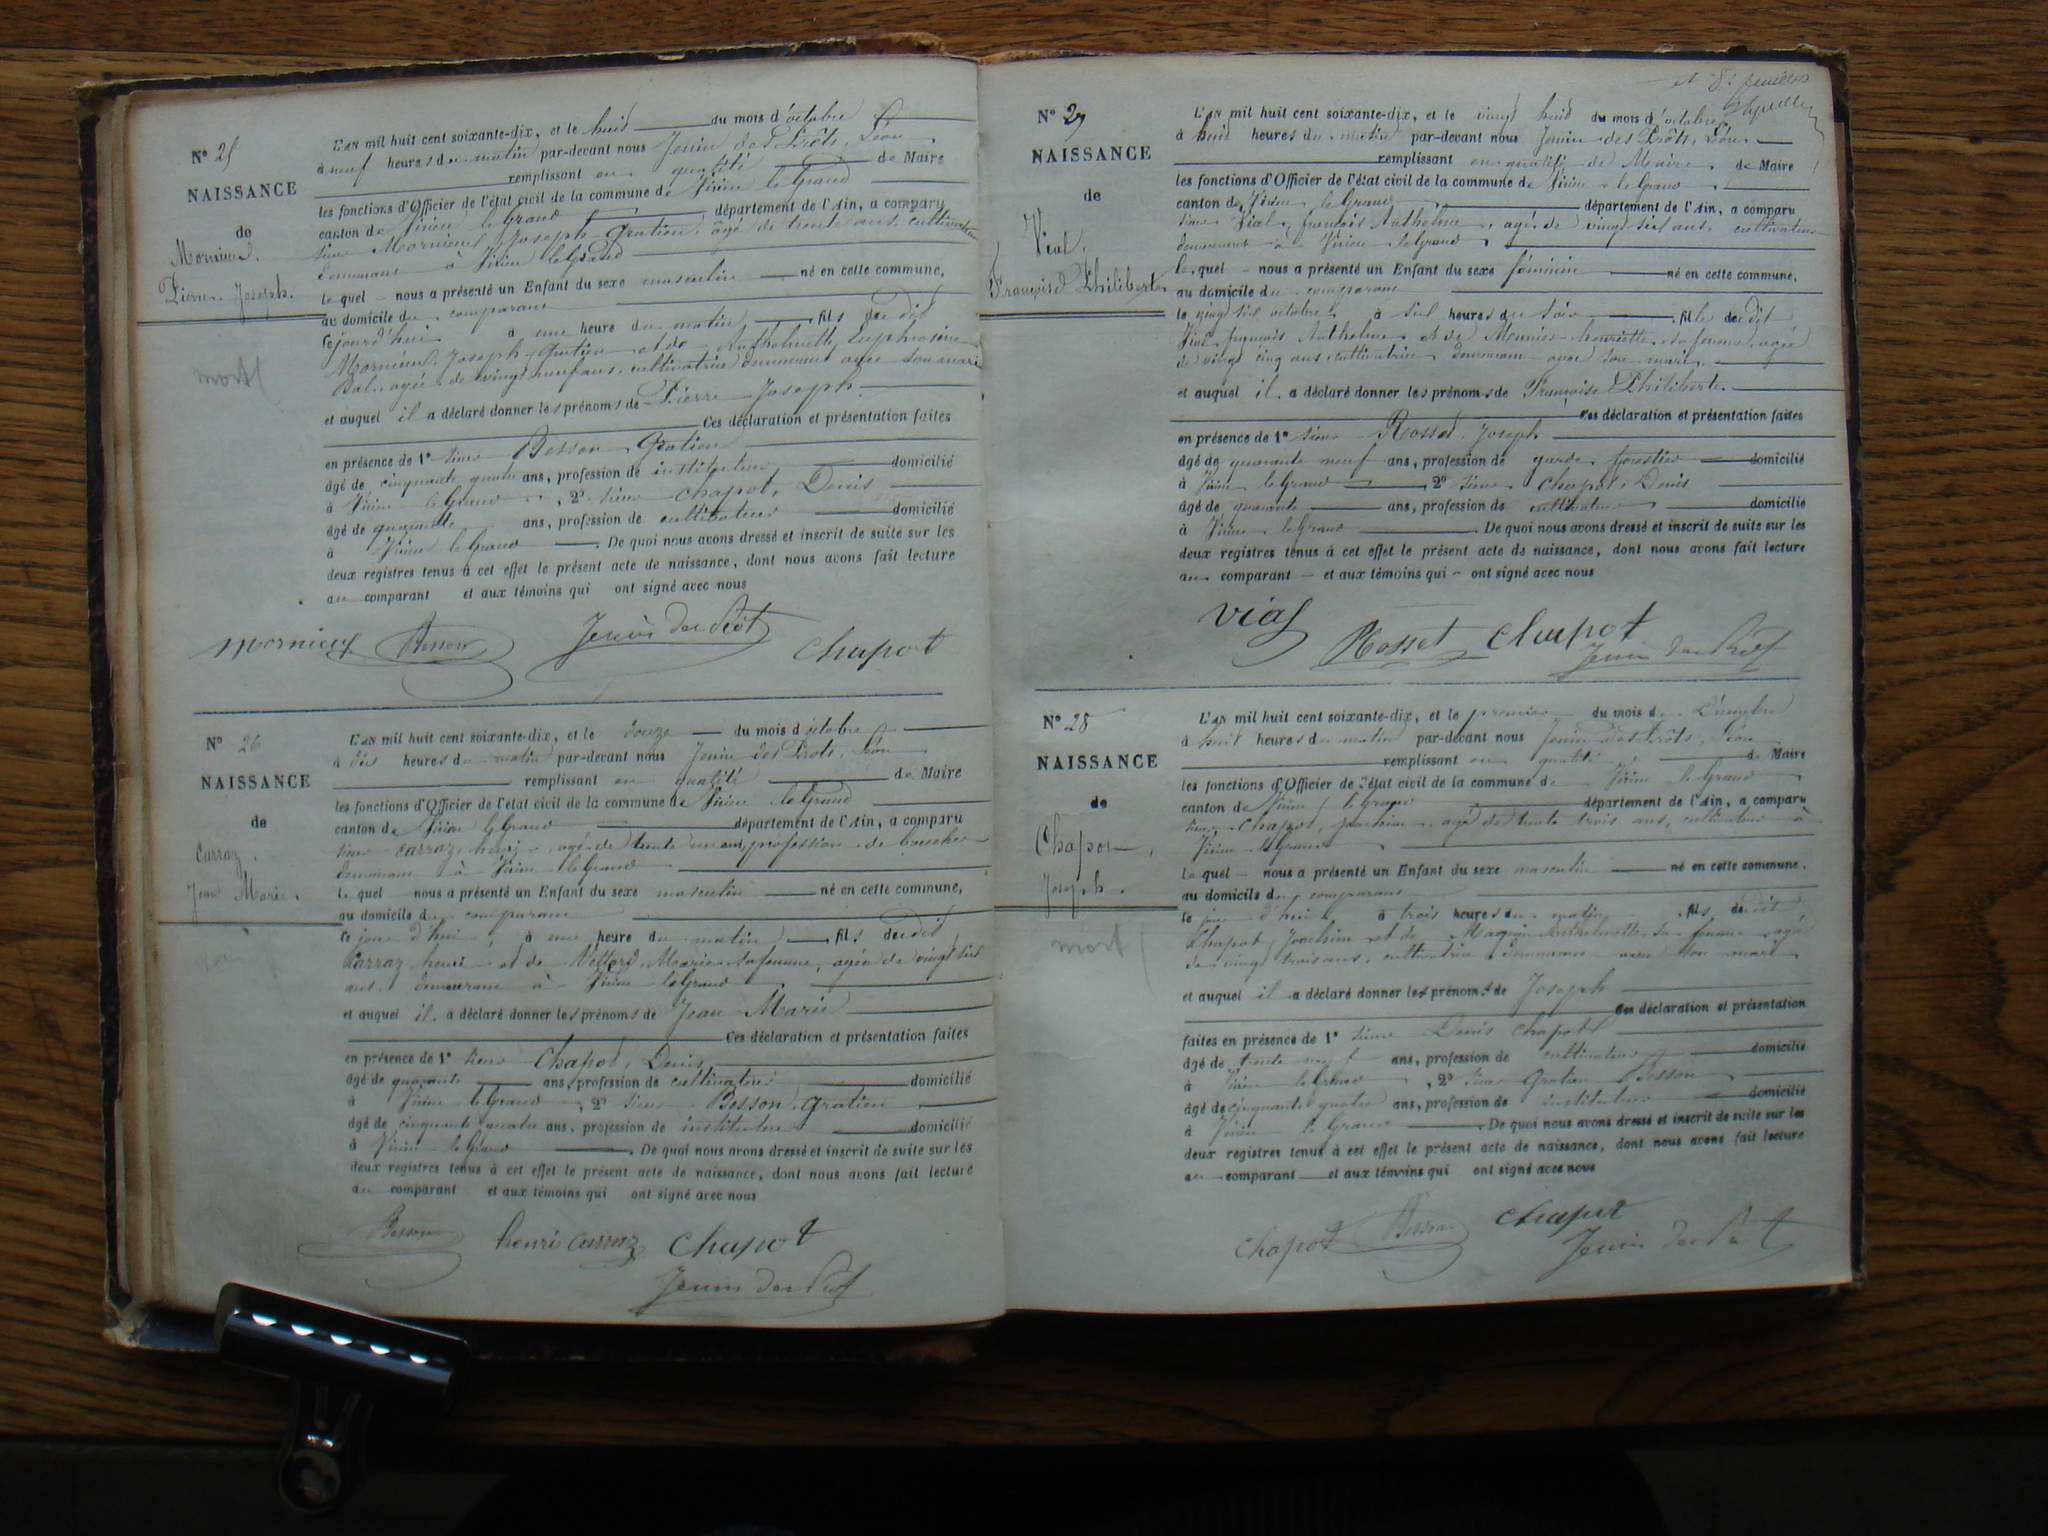 N° 25
NAISSANCE
de
Mornieux
Pierre Joseph.
mort
L'AN mil huit cent soixante-dix, et le huit du mois d'octobre
à neuf heures du matin par-devant nous Jenin des Prôts, Léon
remplissant en qualité de Maire
les fonctions d'Officier de l'état civil de la commune de Virieu le Grand
canton de Virieu le Grand département de l'Ain, a comparu
sieur Mornieux Joseph Gratien, âgé de trente ans, cultivateur
demeurant à Virieu le Grand
lequel nous a présenté un Enfant du sexe masculin né en cette commune,
au domicile du comparant
ce jourd'hui à une heure du matin fils du dit
Mornieux Joseph Gratien et de Anthelmette Euphrosine
Bal, agée de vingt neuf ans, cultivatrice demeurant avec son mari
et auquel il a déclaré donner les prénoms de Pierre Joseph
Ces déclaration et présentation faites
en présence de 1° sieur Besson Gratien
âgé de cinquante quatre ans, profession de instituteur domicilié
à Virieu le Grand, 2° sieur Chapot, Denis
âgé de quarante ans, profession de cultivateur domicilié
à Virieu le Grand. De quoi nous avons dressé et inscrit de suite sur les
deux registres tenus à cet effet le présent acte de naissance, dont nous avons fait lecture
au comparant et aux témoins qui ont signé avec nous
Mornieux Besson Jenin des Prôts Chapot
N° 26
NAISSANCE
de
Carraz,
Jean Marie.
L'AN mil huit cent soixante-dix, et le douze du mois d'octobre
à dix heures du matin par-devant nous Jenin des Prôts, Léon
remplissant en qualité de Maire
les fonctions d'Officier de l'état civil de la commune de Virieu le Grand
canton de Virieu le Grand département de l'Ain, a comparu
sieur Carraz, henri, agé de trente un ans, profession de boucher
demeurant à Virieu le Grand
lequel nous a présenté un Enfant du sexe masculin né en cette commune,
au domicile du comparant
ce jour d'hui, à une heure du matin fils du dit
Carraz henri et de Marie sa femme, agée de vingt six
ans demeurant à Virieu le Grand
et auquel il a déclaré donner les prénoms de Jean Marie
Ces déclaration et présentation faites
en présence de 1° sieur Chapot, Denis
âgé de quarante ans, profession de cultivateur domicilié
à Virieu le Grand, 2° sieur Besson, Gratien
âgé de cinquante quatre ans, profession de instituteur domicilié
à Virieu le Grand. De quoi nous avons dressé et inscrit de suite sur les
deux registres tenus à cet effet le présent acte de naissance, dont nous avons fait lecture
au comparant et aux témoins qui ont signé avec nous
Besson henri Carraz Chapot
Jenin des Prôts
N° 27
NAISSANCE
de
Vial.
Françoise Philiberte
L'AN mil huit cent soixante-dix, et le vingt huit du mois d'octobre
à huit heures du matin par-devant nous Jenin des Prôts, Léon
remplissant en qualité de Maire de Maire
les fonctions d'Officier de l'état civil de la commune de Virieu le Grand
canton de Virieu le Grand département de l'Ain, a comparu
sieur Vial, françois Anthelme, agé de vingt six ans, cultivateur
demeurant à Virieu le Grand
lequel nous a présenté un Enfant du sexe féminin né en cette commune,
au domicile du comparant
le vingt six octobre à six heures du soir fille du dit
Vial françois Anthelme et de Meunier henriette, sa femme, agée
de vingt cinq ans, cultivatrice demeurant avec son mari
et auquel il a déclaré donner les prénoms de Françoise Philiberte
Ces déclaration et présentation faites
en présence de 1° sieur Rosset Joseph
âgé de quarante neuf ans, profession de garde forestier domicilié
à Virieu le Grand 2° sieur Chapot, Denis
âgé de quarante ans, profession de cultivateur domicilié
à Virieu le Grand. De quoi nous avons dressé et inscrit de suite sur les
deux registres tenus à cet effet le présent acte de naissance, dont nous avons fait lecture
au comparant et aux témoins qui ont signé avec nous
Vial Rosset Chapot Jenin des Prôts
N° 28
NAISSANCE
de
Chapot,
Joseph.
mort
L'AN mil huit cent soixante-dix, et le premier du mois de Décembre
à huit heures du matin par-devant nous Jenin des Prôts, Léon
remplissant en qualité de Maire
les fonctions d'Officier de l'état civil de la commune de Virieu le Grand
canton de Virieu le Grand département de l'Ain, a comparu
sieur Chapot, Joachim, agé de trente trois ans, cultivateur à
Virieu le Grand
lequel nous a présenté un Enfant du sexe masculin né en cette commune.
au domicile du comparant
ce jour d'hui à trois heures du matin fils du dit
Chapot, Joachim et de Anthelmette sa femme agée
de vingt trois ans, cultivatrice demeurant avec son mari
et auquel il a déclaré donner les prénoms de Joseph
Ces déclaration et présentation
faites en présence de 1° sieur Denis Chapot
âgé de trente neuf ans, profession de cultivateur domicilié
à Virieu le Grand, 2° sieur Gratien Besson
âgé de cinquante quatre ans, profession de instituteur domicilié
à Virieu le Grand. De quoi nous avons dressé et inscrit de suite sur les
deux registres tenus à cet effet le présent acte de naissance, dont nous avons fait lecture
au comparant et aux témoins qui ont signé avec nous
Chapot Besson Chapot
Jenin des Prôts